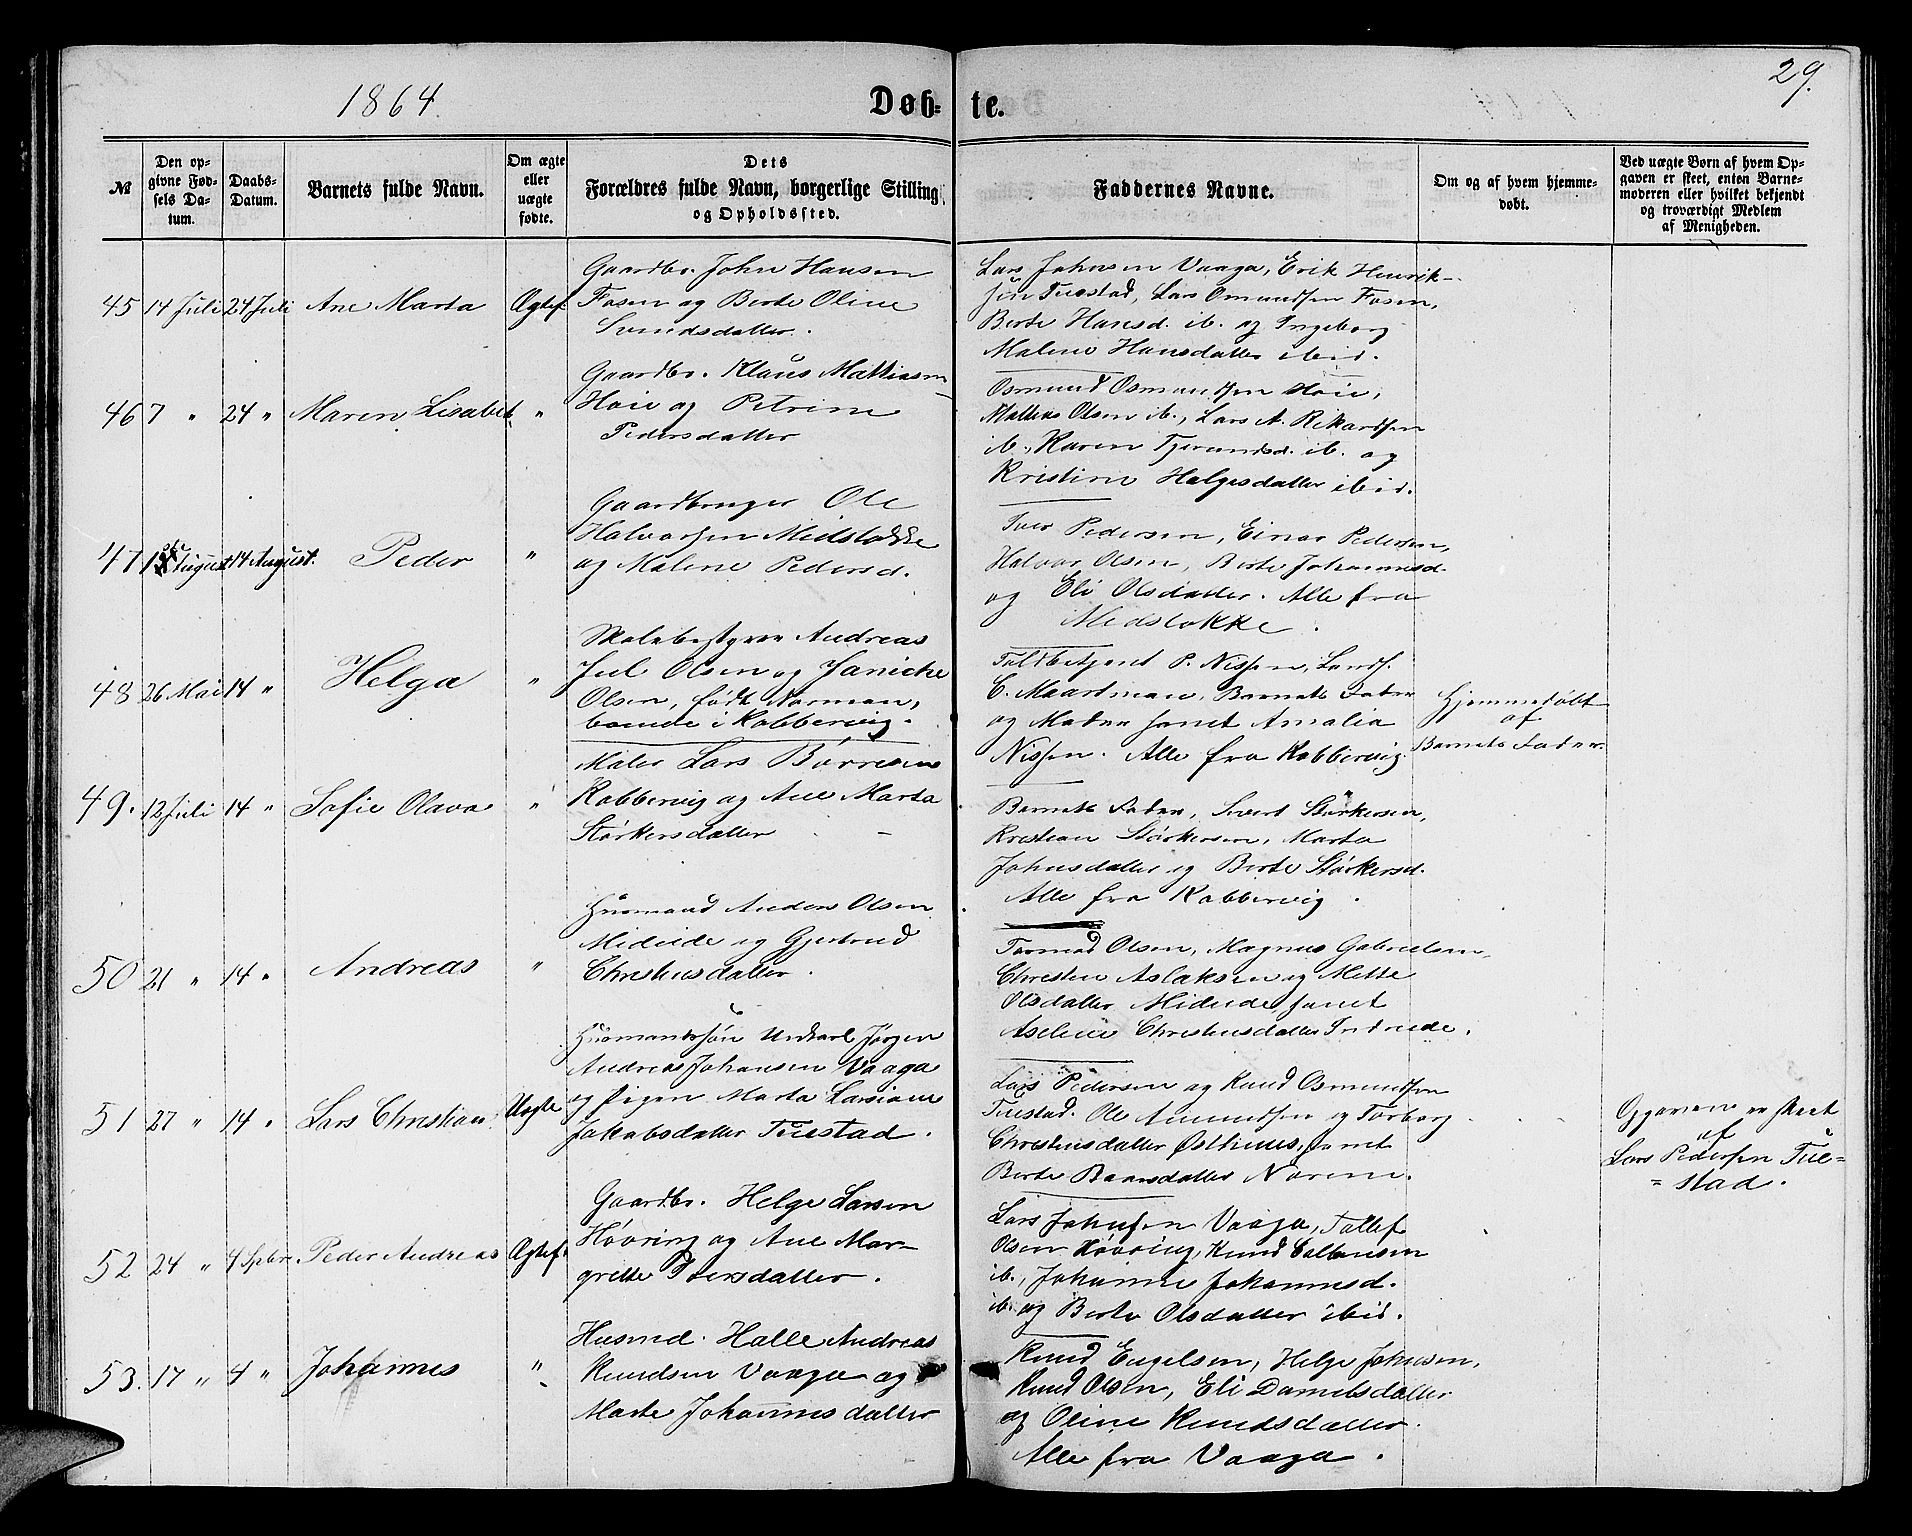 1864.
Døb-
te.
29.
№
Den op-
givne Fød-
sels Da-
tum.
Daabs-
Datum.
Barnets fulde Navn.
Om ægte
eller
uægte
fødte.
Dets
Forældres fulde Navn, borgerlige Stilling
og Opholdssted.
Faddernes Navne.
Om og af hvem hjemme-
døbt.
Ved uægte Børn af hvem Op-
gaven er skeet, enten Barne-
moderen eller hvilket bekjendt
og troværdigt Medlem
af Menigheden.
45 14 Juli 24 Juli Ane Marta Ægtef.
Gaardbr. John Hansen
Fosen og Berte Oline
Svendsdatter.
Lars Johnsen Vaaga, Erik Henrik-
sen Tuestad, Lars Osmundsen Fosen,
Berte Hansd. ib. og Ingeborg
Malene Hansdatter ibid.
46 7 " 24 " Maren Lisabet "
Gaardbr. Klaus Mathiasen
Hoie og Petrine
Pedersdatter
Osmund Osmundsen Hoie,
Mathias Olsen ib., Lars A. Rikardsen
ib., Karen Tjerandsd. ib. og
Kristine Helgesdatter ibid.
47 August 14 August. Peder "
Gaardbruger Ole
Halvorsen Midstokke
og Malene Pedersd.
Iver Pedersen, Einar Pedersen,
Halvor Olsen, Berte Johannesd.
og Eli Olsdatter. Alle fra
Midstokke.
48 26 Mai 14 " Helga "
Andreas
Juel Olsen og Janicke
Olsen, født Norman,
boende i Kobbervig.
Toldbetjent P. Nissen, Landh.
C. Maartman, Barnets Fader
og Moder samt Amalia
Nissen. Alle fra Kobbervig
Hjemmedøbt
af
Barnets Fader.
49. 12 Juli 14 " Sofie Olava "
Maler Lars Børresen
Kobbervig og Ane Marta
Størkersdatter
Barnets Fader, Sivert Størkersen,
Kristian Størkersen, Marta
Johnsdatter og Berte Størkersd.
Alle fra Kobbervig.
50 21 " 14 " Andreas "
Husmand Anders Olsen
Mideide og Gjertrud
Christensdatter.
Tormod Olsen, Magnus Gabrielsen,
Christen Aslaksen og Mette
Olsdatter Mideide samt
Aseline Christensdatter Indreeide.
51 27 " 14 " Lars Christian Uægte
Husmandssøn Ungkarl Jørgen
Andreas Johansen Vaaga
og Pigen Marta Larsiane
Jakobsdatter Tuestad.
Lars Pedersen og Knud Osmundsen
Tuestad. Ole Amundsen og Torborg
Christensdatter Østhuus, samt
Berte Baarsdatter Norem.
Opgaven er skeet
af
Lars Pedersen Tue-
= stad.
52 24 " 4 Spbr. Peder Andreas Ægtef.
Gaardbr. Helge Larsen
Høvring og Ane Mar-
grethe Iversdatter.
Lars Johnsen Vaaga, Tollef
Olsen Høvring, Knud Salbensen
ib., Johanne Johannesd.
ib. og Berte Olsdatter ibid.
53. 17 " 4 " Johannes "
Husmd. Halle Andreas
Knudsen Vaaga og
Marte Johannesdatter
Knud Engelsen, Helge Johnsen,
Knud Olsen, Eli Danielsdatter
og Oline Knudsdatter.
Alle fra Vaaga.